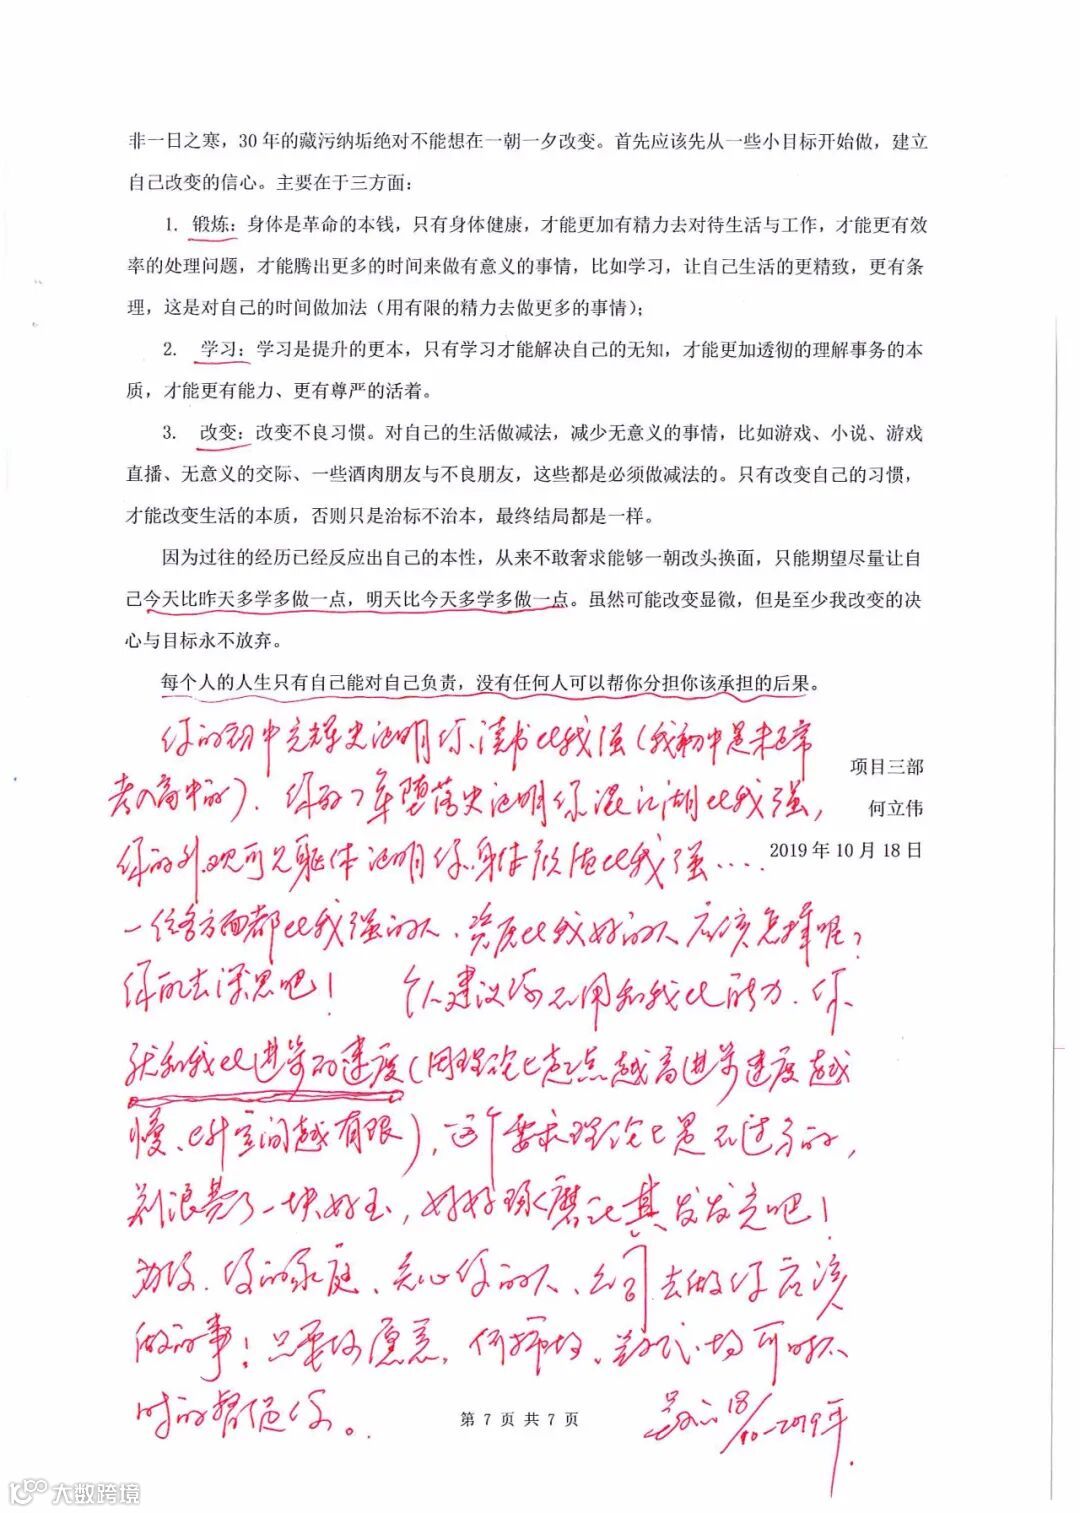 非一日之寒，30 年的藏污纳垢绝对不能想在一朝一夕改变。首先应该先从一些小目标开始做，建立
自己改变的信心。主要在于三方面：
1. 锻炼：身体是革命的本钱，只有身体健康，才能更加有精力去对待生活与工作，才能更有效
率的处理问题，才能腾出更多的时间来做有意义的事情，比如学习，让自己生活的更精致，更有条
理，这是对自己的时间做加法（用有限的精力去做更多的事情）；
2. 学习：学习是提升的更本，只有学习才能解决自己的无知，才能更加透彻的理解事务的本
质，才能更有能力、更有尊严的活着。
3. 改变：改变不良习惯。对自己的生活做减法，减少无意义的事情，比如游戏、小说、游戏
直播、无意义的交际、一些酒肉朋友与不良朋友，这些都是必须做减法的。只有改变自己的习惯，
才能改变生活的本质，否则只是治标不治本，最终结局都是一样。
因为过往的经历已经反应出自己的本性，从来不敢奢求能够一朝改头换面，只能期望尽量让自
己今天比昨天多学多做一点，明天比今天多学多做一点。虽然可能改变显微，但是至少我改变的决
心与目标永不放弃。
每个人的人生只有自己能对自己负责，没有任何人可以帮你分担你该承担的后果。
你的初中光辉史证明你读书比我强（我初中是未正常
考入高中的）．你的7年堕落史证明你混江湖比我强，
你的外观可见躯体证明你身体颜值比我强….
一位各方面都比我强的人、资质比我好的人应该怎样呢？
你的去深思吧！ 个人建议你不用和我比能力．你
就和我比进步的速度（因理论上起点越高进步速度越
慢、上升空间越有限），这个要求理论上是不过分的，
别浪费了一块好玉，好好琢磨让其发发光吧！
为你．你的家庭、关心你的人、公司去做你应该
做的事！只要你愿意，何 时不
时的帮促你。
项目三部
何立伟
2019 年 10 月 18 日
第 7 页 共 7 页
18/10-2019年.
大数跨境